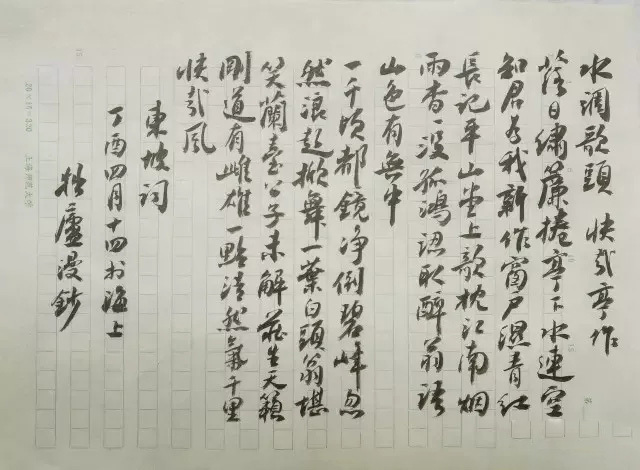 水調歌頭 快哉亭作
落日繡簾捲亭下水連空
知君為我新作窗戶濕青紅
長記平山堂上欹枕江南烟
雨杳〻没孤鴻認取醉翁語
山色有無中
一千頃都鏡净倒碧峰忽
然浪起掀舞一葉白頭翁堪
笑蘭臺公子未解莊生天籟
剛道有雌雄一點浩然氣千里
快哉風
東坡詞
丁酉四月十四 海上
廬漫鈔
20×15=300